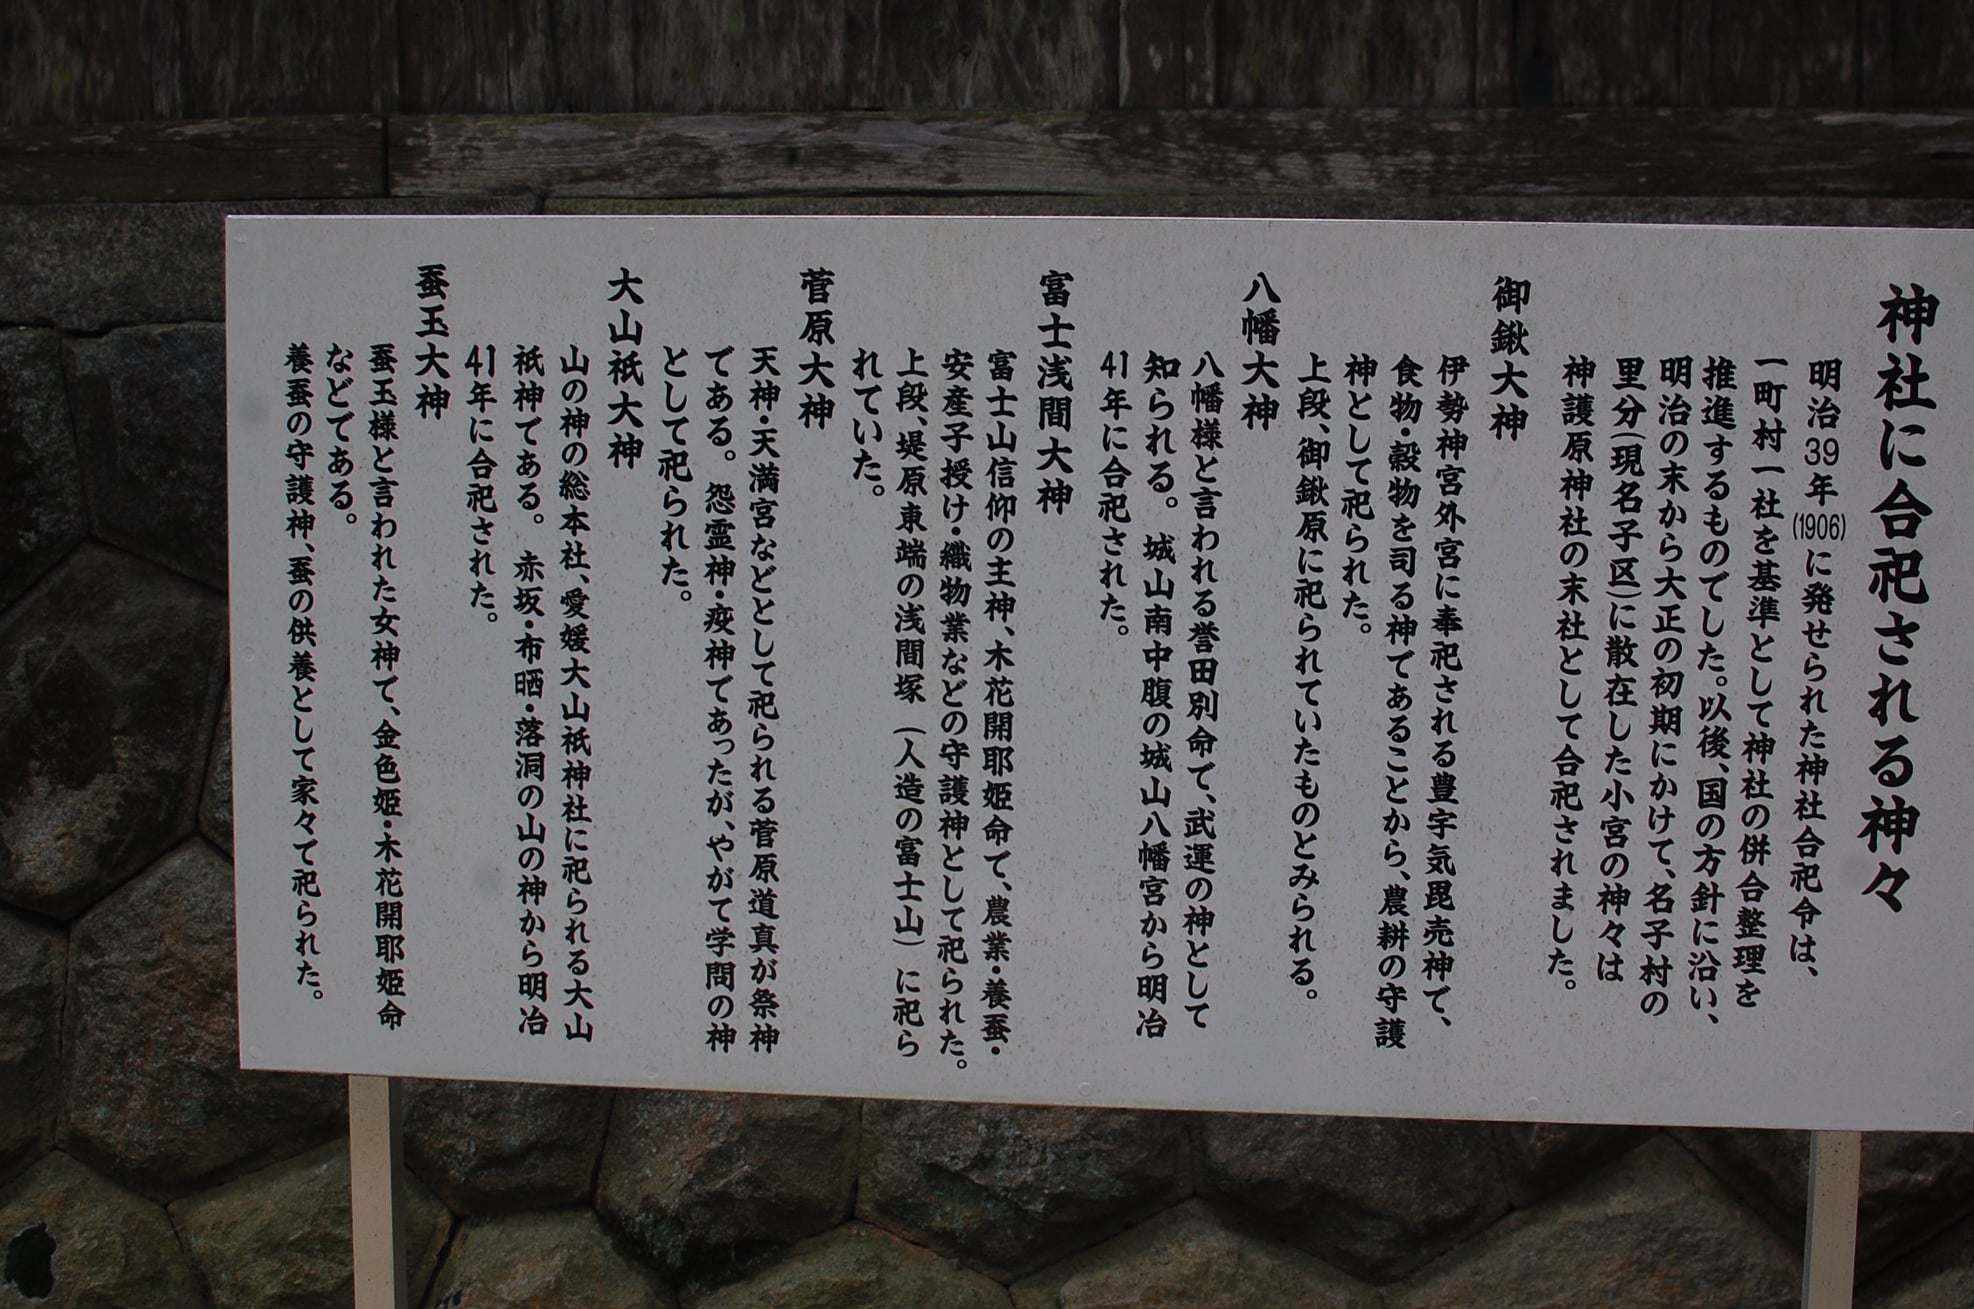 神社に合祀される神々
明治39年(1906)に発せられた神社合祀令は、
一町村一社を基準として神社の併合整理を
推進するものでした。以後、国の方針に沿い、
明治の末から大正の初期にかけて、名子村の
里分(現名子区)に散在した小宮の神々は
神護原神社の末社として合祀されました。
御鍬大神
伊勢神宮外宮に奉祀される豊宇気毘売神で、
食物・穀物を司る神であることから、農耕の守護
神として祀られた。
上段、御鍬原に祀られていたものとみられる。
八幡大神
八幡様と言われる誉田別命で、武運の神として
知られる。城山南中腹の城山八幡宮から明治
41年に合祀された。
富士浅間大神
富士山信仰の主神、木花開耶姫命で、農業・養蚕・
安産子授け・織物業などの守護神として祀られた。
上段、堤原東端の浅間塚（人造の富士山）に祀ら
れていた。
菅原大神
天神・天満宮などとして祀られる菅原道真が祭神
である。怨霊神・疫神であったが、やがて学問の神
として祀られた。
大山祇大神
山の神の総本社、愛媛大山祇神社に祀られる大山
祇神である。赤坂・布晒・落洞の山の神から明治
41年に合祀された。
蚕玉大神
蚕玉様と言われた女神で、金色姫・木花開耶姫命
などである。
養蚕の守護神、蚕の供養として家々で祀られた。